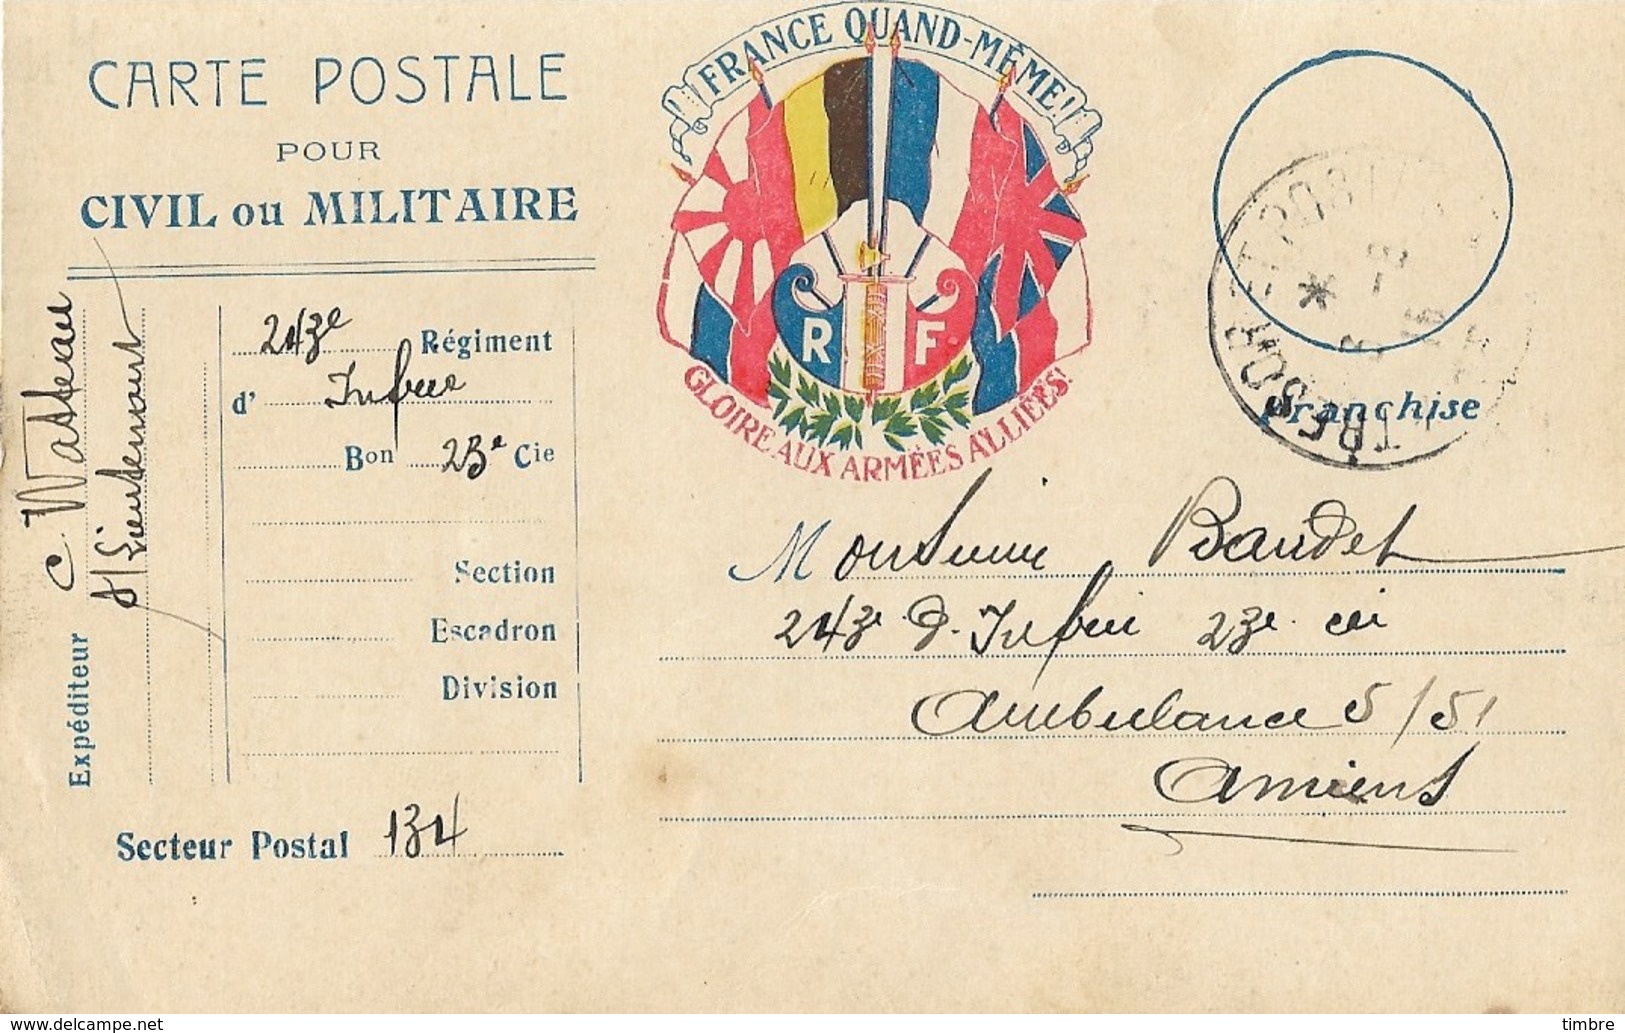 CARTE POSTALE
POUR
CIVIL ou MILITAIRE
FRANCE QUAND-MÊME!
R F
GLOIRE AUX ARMÉES ALLIÉES!
Franchise
TRESOR ET POSTES
Expéditeur
C. Watteau
S/Lieutenant
243e Régiment
d' Infrie
Bon 23e Cie
Section
Escadron
Division
Secteur Postal 134
Monsieur Baudet
243e d'Infrie 23e cie
Ambulance 5/51
Amiens
delcampe.net
timbre